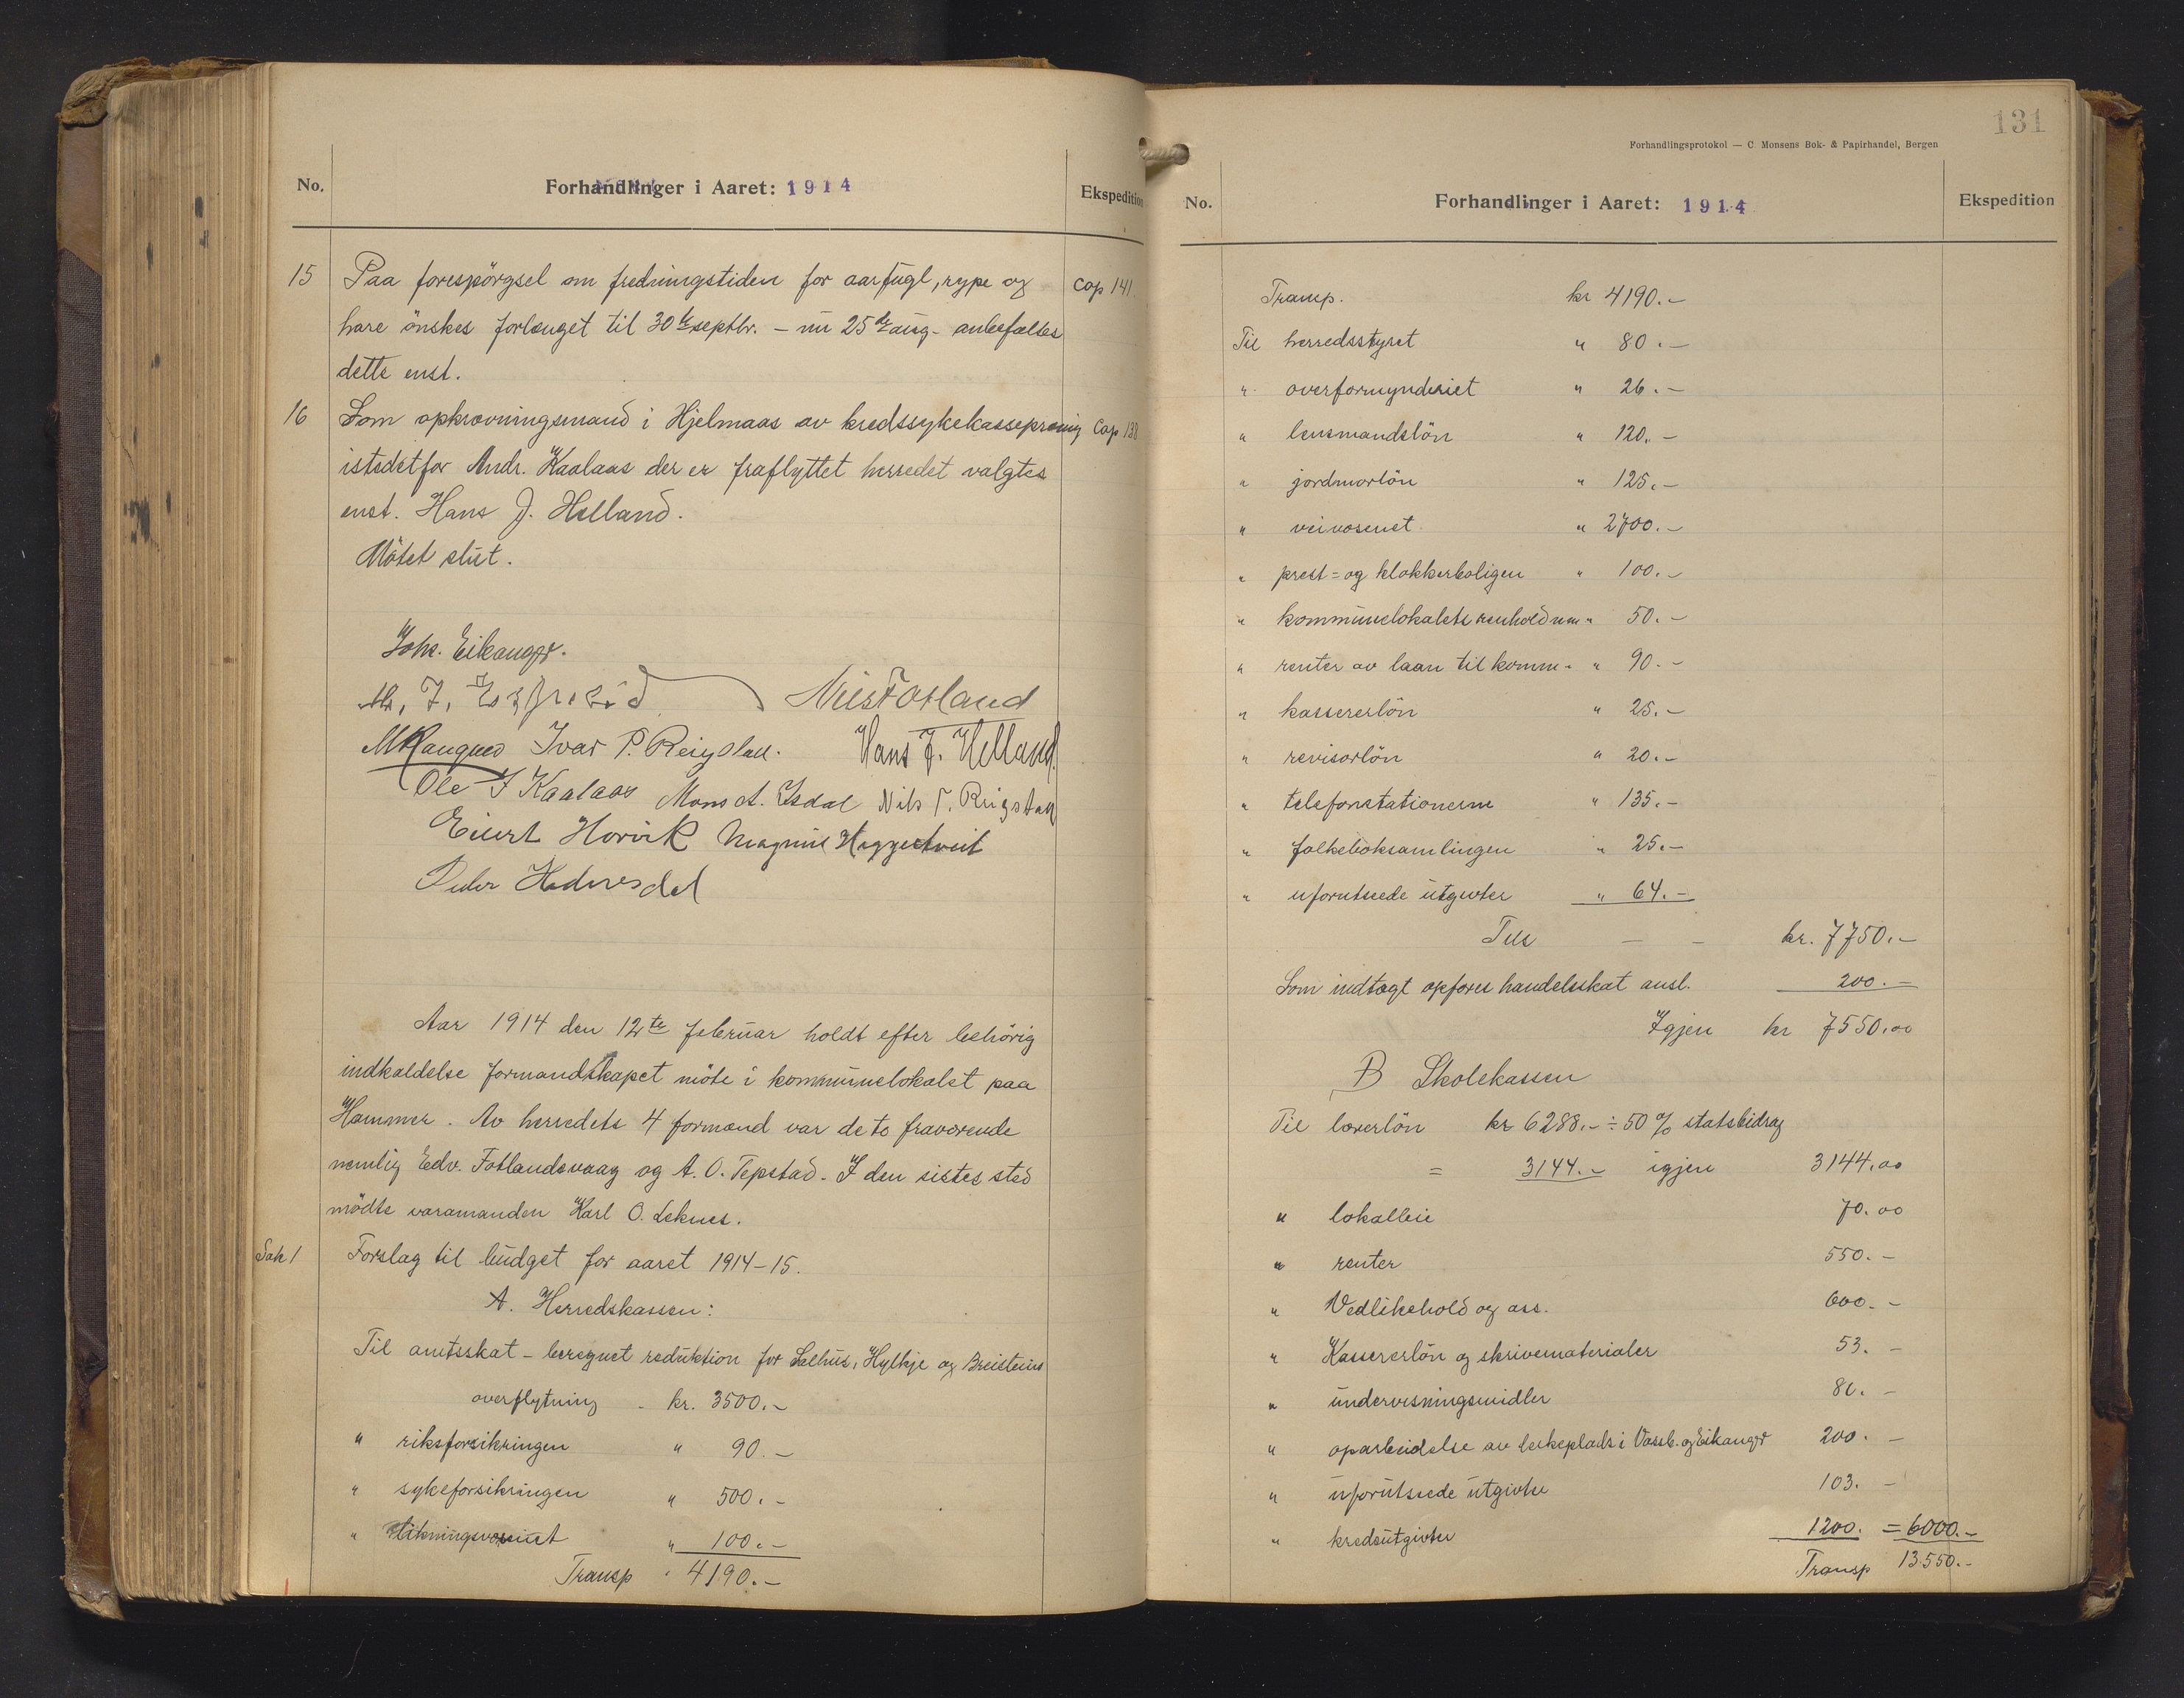 No. Forhandlinger i Aaret: 1914 Ekspedition
15 Paa forespörgsel om fredningstiden for aarfugl, rype og Cop 141.
hare önskes forlænget til 30te septbr. – nu 25de aug. anbefaltes
dette enst.
16 Som opkrævningsmand i Hjelmaas av kredssykekassepræmie Cop 138
istedetfor Andr. Kaalaas der er fraflyttet herredet valgtes
enst. Hans J. Helland.
Mötet slut.
Johs. Eikanger.
Nils Fotland
Ivar P. Reigstad. Hans J. Helland.
Ole J Kaalaas Mons A. Isdal Nils T. Reigstad
Eilert Horvik Magnus Haggertveit
Peder
Aar 1914 den 12te februar holdt efter behörig
indkaldelse formandskapet möte i kommunelokalet paa
Hammer. Av herredets 4 formænd var de to fraværende
nemlig Edv. Fotlandsvaag og A. O. Tepstad. I den sistes sted
mödte varamanden Karl O. Leknes.
Sak 1 Forslag til budget for aaret 1914–15.
A. Herredskassen:
Til amtsskat – beregnet reduktion for Salhus, Hylkje og Breisteins
overflytning - kr. 3500.–
" riksforsikringen " 90.–
" sykeforsikringen " 500.–
" likningsvæsenet " 100.–
Transp " 4190.–
131
Forhandlingsprotokol — C. Monsens Bok- & Papirhandel, Bergen
No. Forhandlinger i Aaret: 1914 Ekspedition
Transp. kr 4190.–
Til herredsstyret " 80.–
" overformynderiet " 26.–
" lensmandslön " 120.–
" jordmorlön " 125.–
" veivæsenet " 2700.–
" prest= og klokkerboligen " 100.–
" kommunelokalets renhold m.m. " 50.–
" renter av laan til komm. " 90.–
" kassererlön " 25.–
" revisorlön " 20.–
" telefonstationerne " 135.–
" folkeboksamlingen " 25.–
" uforutseede utgivter " 64.–
Tils – – kr. 7750.–
Som indtægt opföres handelsskat ansl. 200.–
Igjen kr 7550.00
B Skolekassen
Til lærerlön kr 6288.– ÷ 50 % statsbidrag
= 3144.– igjen 3144.00
" lokalleie 70.00
" renter 550.–
" Vedlikehold og ass. 600.–
" Kassererlön og skrivematerialer 53.–
" undervisningsmidler 80.–
" oparbeidelse av lekeplads i Vassb. og Eikanger 200.–
" uforutseede utgivter 103.–
" kredsutgivter 1200. = 6000.–
Transp 13.550.–